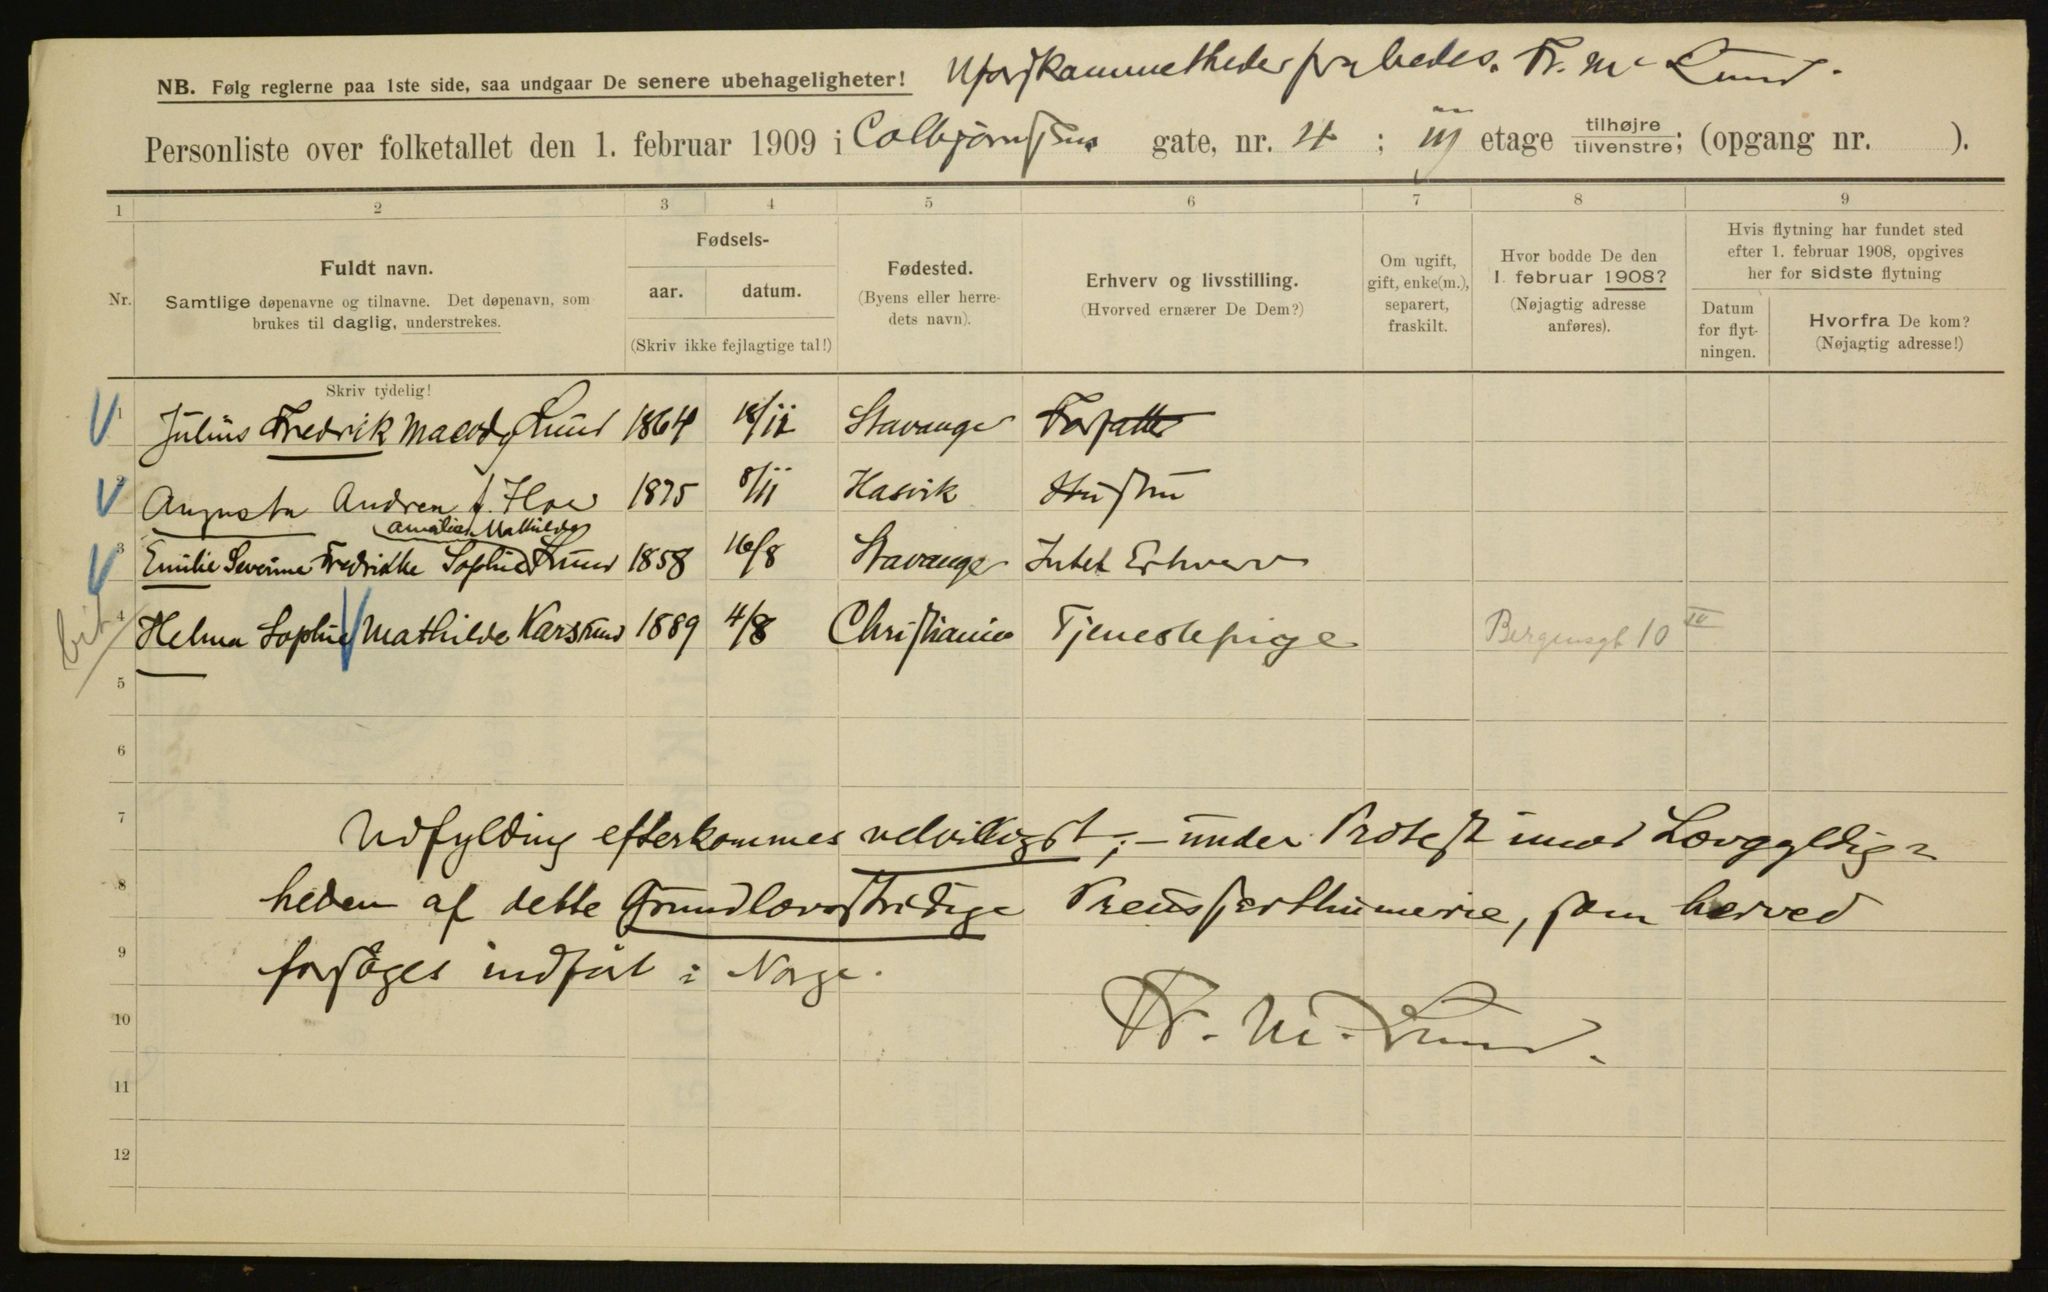 NB. Følg reglerne paa 1ste side, saa undgaar De senere ubehageligheter!
Uforskammetheder frabedes. Fr. M. Lund.
Personliste over folketallet den 1. februar 1909 i Colbjørnsens gate, nr. 4 ; III etage tilhøjre tilvenstre; (opgang nr. ).
1 2 3 4 5 6 7 8 9
Nr.
Fuldt navn.
Samtlige døpenavne og tilnavne. Det døpenavn, som
brukes til daglig, understrekes.
Fødsels-
aar. datum.
(Skriv ikke fejlagtige tal!)
Fødested.
(Byens eller herre-
dets navn).
Erhverv og livsstilling.
(Hvorved ernærer De Dem?)
Om ugift,
gift, enke(m.),
separert,
fraskilt.
Hvor bodde De den
1. februar 1908?
(Nøjagtig adresse
anføres).
Hvis flytning har fundet sted
efter 1. februar 1908, opgives
her for sidste flytning
Datum
for flyt-
ningen.
Hvorfra De kom?
(Nøjagtig adresse!)
Skriv tydelig!
1 Julius Fredrik Macody Lund 1864 18/11 Stavanger Forfatter
2 Augusta Andrea f. Hoe 1875 8/11 Hasvik Hustru
Amalie Mathilde
3 Emilie Severine Fredrikke Sophie Lund 1858 16/8 Stavanger Intet Erhverv
4 Helma Sophie Mathilde Karsrud 1889 4/8 Christiania Tjenestepige Bergensgt 10 IV
5
6
7 Udfylding efterkommes velvilligst; – under Protest imod Lovgyldig-
8 heden af dette Grundlovsstridige Preusserthumerie, som herved
9 forsøges indført i Norge.
10 Fr. M. Lund.
11
12